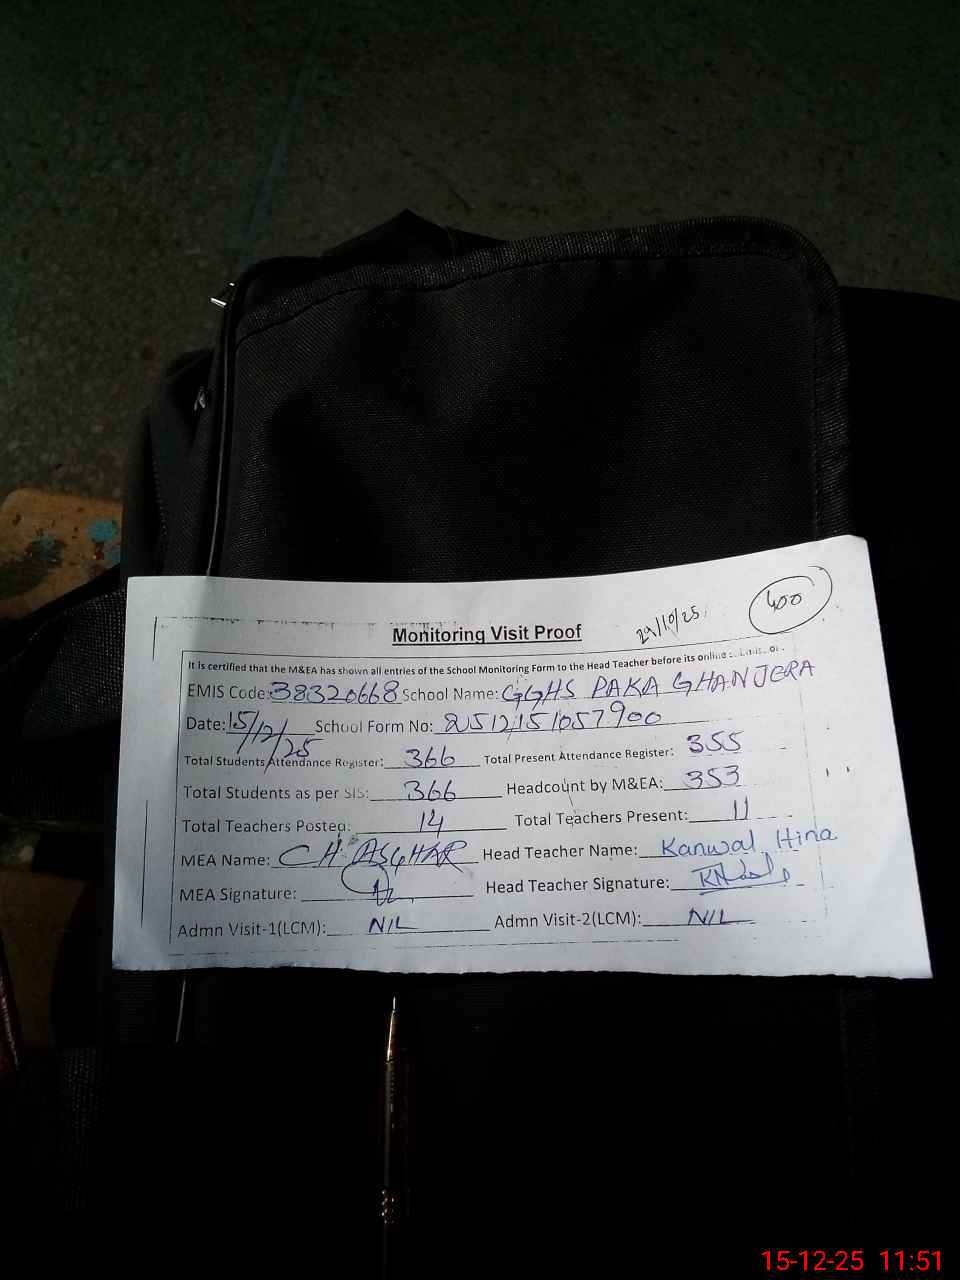 Monitoring Visit Proof
29/10/25
400
It is certified that the M&EA has shown all entries of the School Monitoring Form to the Head Teacher before its online
EMIS Code: 38320668 School Name: GGHS PAKA GHANJERA
Date: 15/12/25 School Form No: 2512151057900
Total Students Attendance Register: 366 Total Present Attendance Register: 355
Total Students as per SIS: 366 Headcount by M&EA: 353
Total Teachers Posted: 14 Total Teachers Present: 11
MEA Name: CH ASGHAR Head Teacher Name: Kanwal Hina
MEA Signature: Head Teacher Signature:
Admn Visit-1(LCM): NIL Admn Visit-2(LCM): NIL
15-12-25 11:51